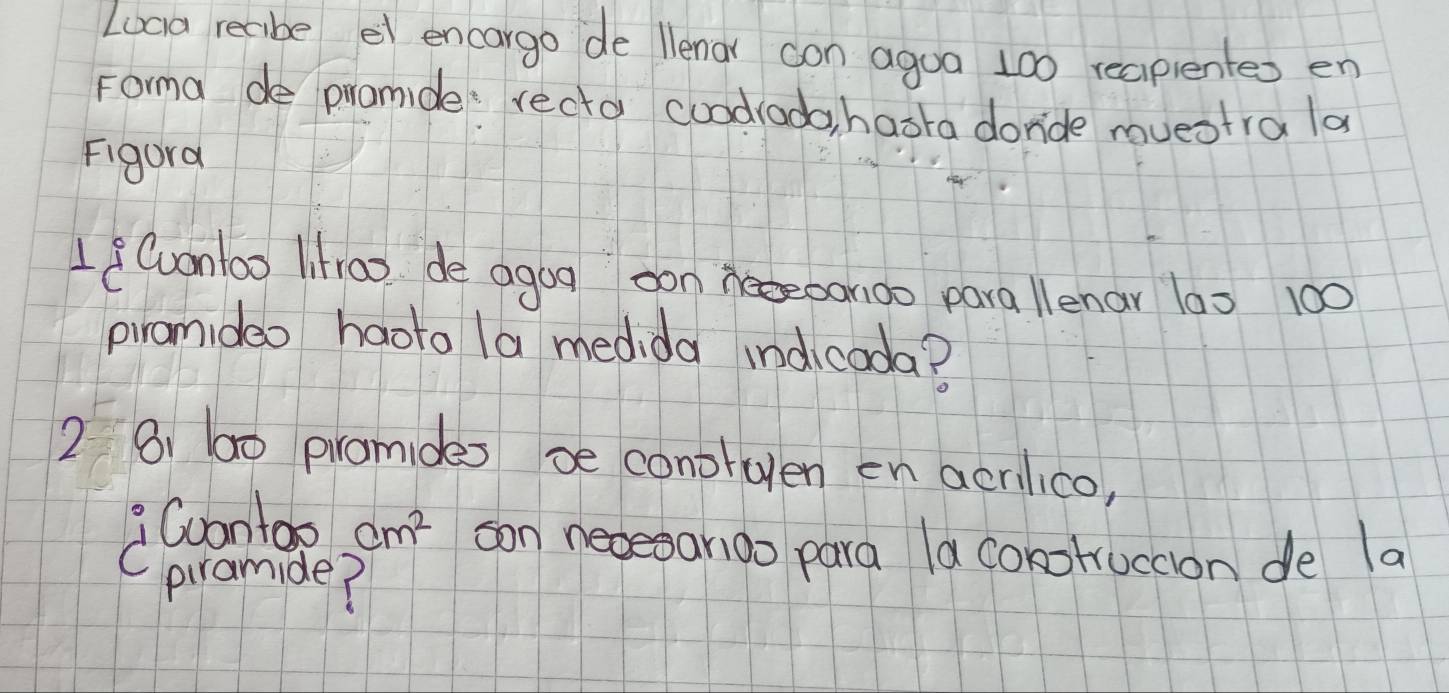 Lucia recibe el encargo de llenar con agua 100 recipientes en
Forma de piramide: recta cuadrada, hasta donde muestra la
Figura
1 ¿Cuantos litros de agua son necesarios para llenar las 100
piramides hasta la medida indicada?
2 Si las piramides se construyen en acrilico,
¿Cuantos cm² son necesarios para la construccion de la
piramide?